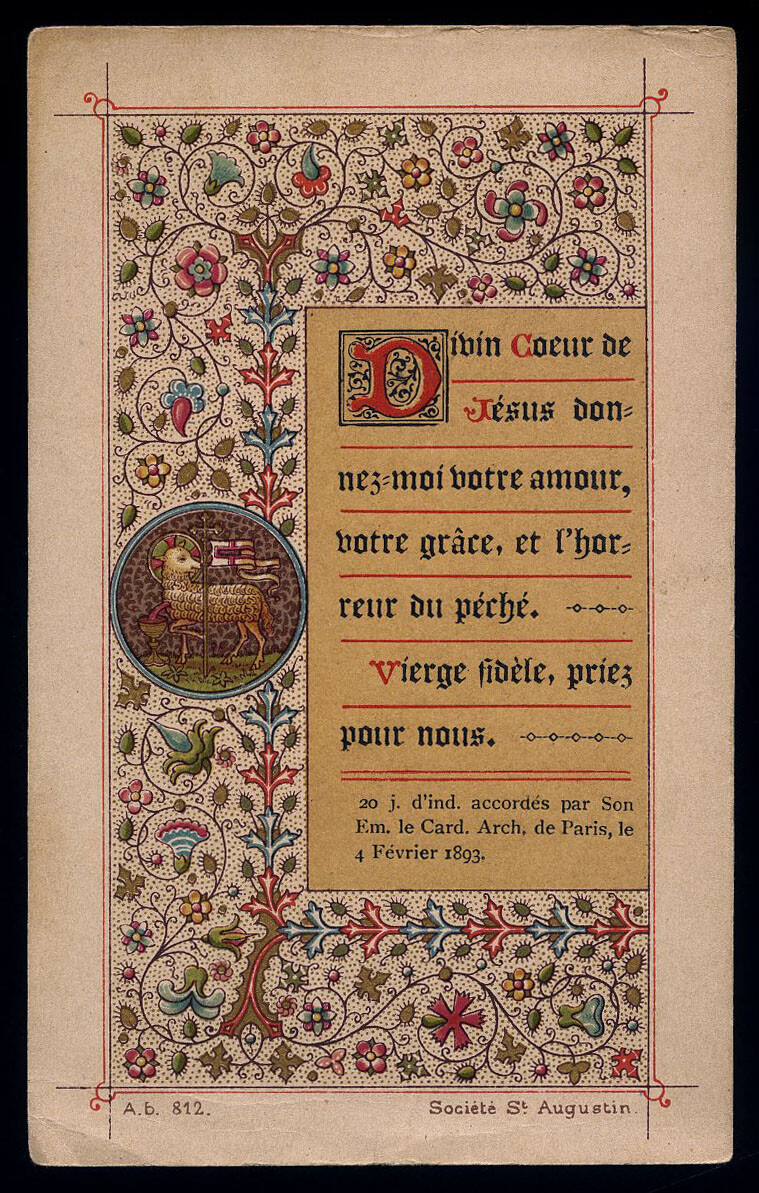 Divin Coeur de
Jésus don=
nez=moi votre amour,
votre grâce, et l'hor=
reur du péché.
Vierge fidèle, priez
pour nous.
20 j. d'ind. accordés par Son
Em. le Card. Arch. de Paris, le
4 Février 1893.
A.b. 812.
Société St Augustin.